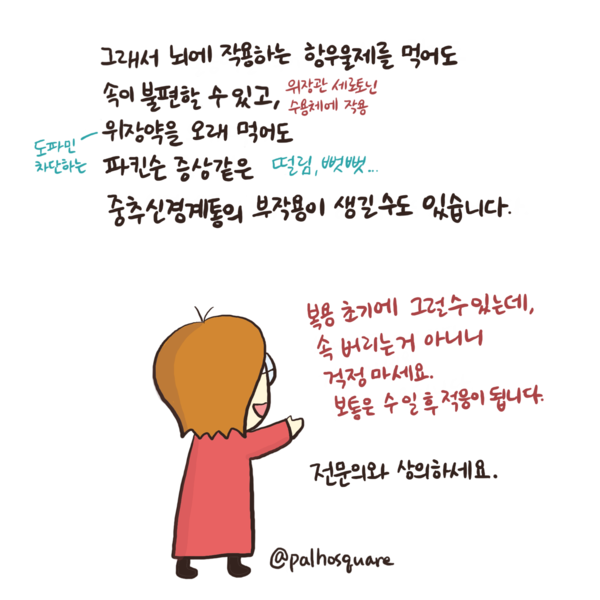 그래서 뇌에 작용하는 항우울제를 먹어도
속이 불편할 수 있고,
위장관 세로토닌
수용체에 작용
도파민
차단하는
위장약을 오래 먹어도
파킨슨 증상같은
떨림, 뻣뻣...
중추신경계통의 부작용이 생길수도 있습니다.
복용 초기에 그럴수있는데,
속 버리는거 아니니
걱정 마세요.
보통은 수일 후 적응이 됩니다.
전문의와 상의하세요.
@palhosquare